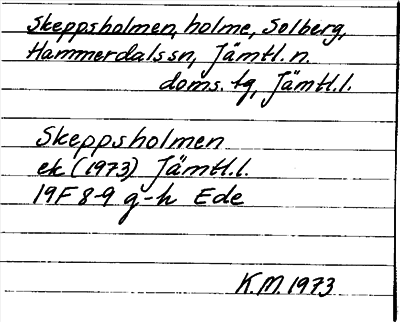 Skeppsholmen, holme, Solberg,
Hammerdals sn, Jämtl. n.
doms. tg, Jämtl. l.
Skeppsholmen
ek (1973) Jämtl. l.
19F 8-9 g-h Ede
K.M. 1973